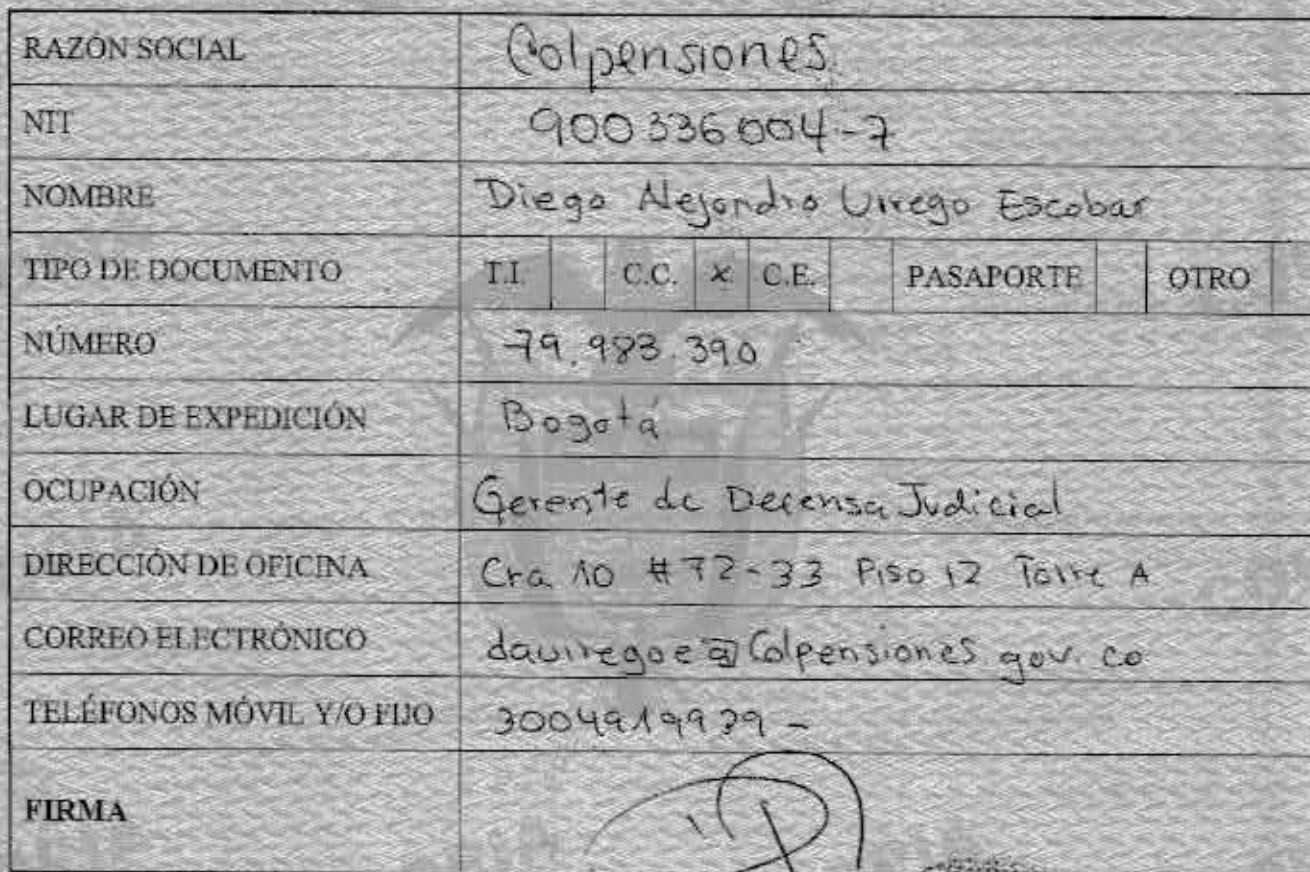 RAZÓN SOCIAL Colpensiones
NIT 900336004-7
NOMBRE Diego Alejandro Urrego Escobar
TIPO DE DOCUMENTO T.I. C.C. x C.E. PASAPORTE OTRO
NÚMERO 79.983.390
LUGAR DE EXPEDICIÓN Bogotá
OCUPACIÓN Gerente de Defensa Judicial
DIRECCIÓN DE OFICINA Cra 10 #72-33 Piso 12 Torre A
CORREO ELECTRÓNICO daurregoe@Colpensiones.gov.co
TELÉFONOS MÓVIL Y/O FIJO
FIRMA